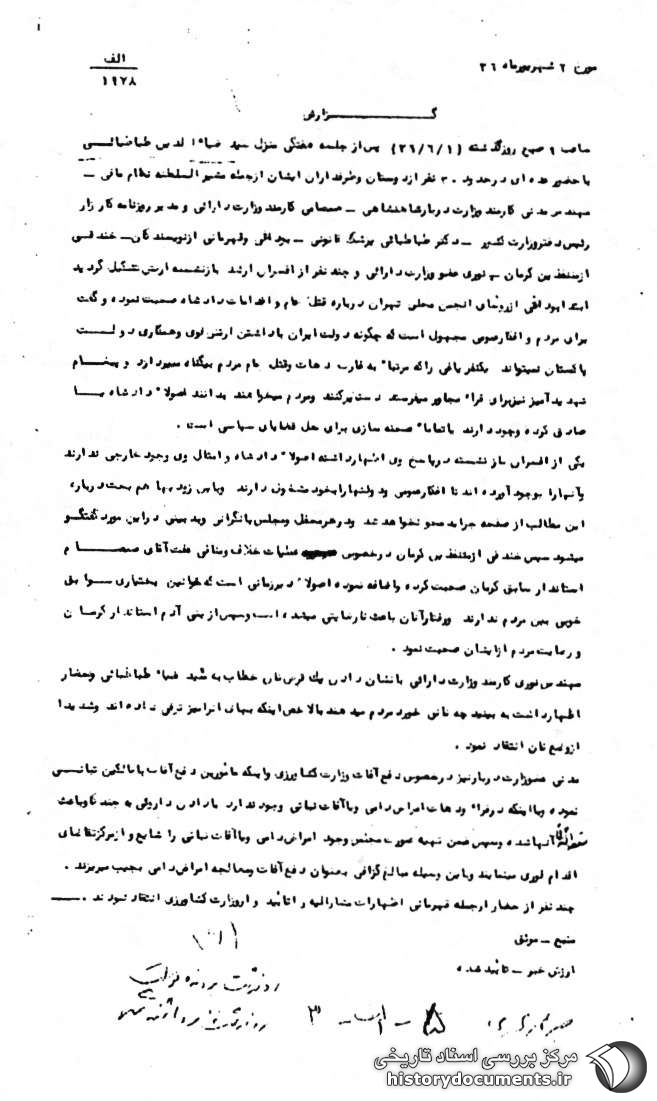 مورخه ۲ شهریور ماه ۳۶
الف
۱۹۷۸
گزارش
ساعت ۹ صبح روز گذشته (۳۶/۶/۱) پس از جلسه هفتگی منزل سید ضیاء الدین طباطبائی
با حضور عده ای در حدود ۳۰ نفر از دوستان و طرفداران ایشان از جمله مشیر السلطنه نظام مافی –
مهندس مدنی کارمند وزارت دربار شاهنشاهی – صمصامی کارمند وزارت دارائی و مدیر روزنامه کارزار
رئیس دفتر وزارت کشور – دکتر طباطبائی پزشک قانونی – قهرمانی از نویسندگان – خندقی
از متنفذین کرمان – نوری عضو وزارت دارائی و چند نفر از افسران ارشد بازنشسته ارتش تشکیل گردید
ابتدا از روسای انجمن محلی تهران درباره قتل عام و اقدامات دادشاه صحبت نموده و گفت
برای مردم و افکار عمومی مجهول است که چگونه دولت ایران با داشتن ارتش قوی و همکاری دولت
پاکستان نمیتواند یکنفر یاغی را که مرتباً به غارت دهات و قتل عام مردم بیگناه میپردازد و پیغام
تهدید آمیز نیز برای قراء مجاور میفرستد دستگیر کنند و مردم میخواهند بدانند اصولاً دادشاه
وجود دارند یا تماماً صحنه سازی برای حل قضایای سیاسی است .
یکی از افسران باز نشسته در پاسخ وی اظهار داشته اصولاً دادشاه و امثال وی وجود خارجی ندارند
و آنها را بوجود آورده اند تا افکار عمومی را بخود مشغول دارند و باین زودیها هم بحث درباره
این مطالب از صفحه جراید محو نخواهد شد و در هر محفل و مجلس با نگرانی و بدبینی در این مورد گفتگو
میشود سپس خندقی از متنفذین کرمان در خصوص عملیات خلاف و منافی عفت آقای صمصام
استاندار سابق کرمان صحبت کرده و اضافه نموده اصولاً دیر زمانی است که خوانین بختیاری سوابق
خوبی بین مردم ندارند و رفتار آنان باعث نارضایتی میشده است و سپس از استاندار کرمان
و رضایت مردم از ایشان صحبت نمود .
مهندس نوری کارمند وزارت دارائی با نشان دادن یک قرص نان خطاب به سید ضیاء طباطبائی و حضار
اظهار داشت به بینید چه نانی خورد مردم میدهند بالاخص اینکه بهای آنرا نیز ترقی داده اند و شدیداً
از وضع نان انتقاد نمود .
مدنی عضو وزارت دربار نیز در خصوص دفع آفات وزارت کشاورزی و اینکه مأمورین دفع آفات با مالکین تبانی
نموده و با اینکه در قراء و دهات امراض دامی و یا آفات نباتی وجود ندارد با دادن داروئی به چند گاو باعث
سقط شدن آنها شده و سپس ضمن تهیه صورت مجلس وجود امراض دامی و یا آفات نباتی را شایع و از مرکز تقاضای
اقدام فوری مینمایند و باین وسیله مبالغ گزافی بعنوان دفع آفات و معالجه امراض دامی بجیب میریزند .
چند نفر از حضار از جمله قهرمانی اظهارات مشارالیه را تأئید و از وزارت کشاورزی انتقاد نمودند .
منبع – موثق
ارزش خبر – تأئید شده
مرکز بررسی اسناد تاریخی
historydocuments.ir